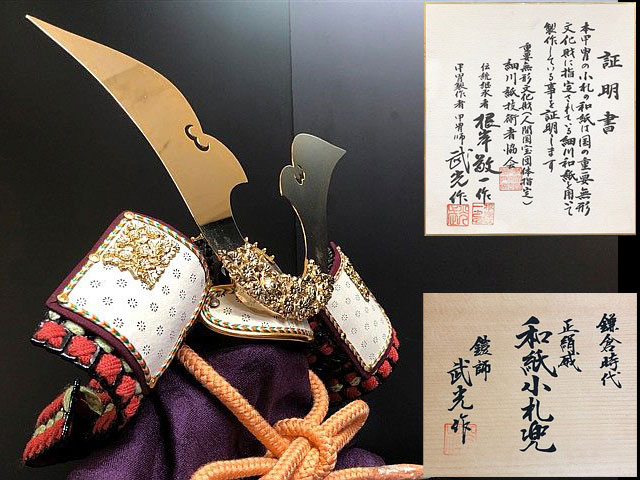 証明書
本甲冑の小札の和紙は国の重要無形
文化財に指定されている細川和紙を用いて
製作している事を証明します
重要無形文化財(人間国宝団体指定)
細川紙技術者協会
伝統継承者 根岸敬一作
甲冑製作者 甲冑師 武光作
鎌倉時代
正絹威
和紙小札兜
鎧師
武光作